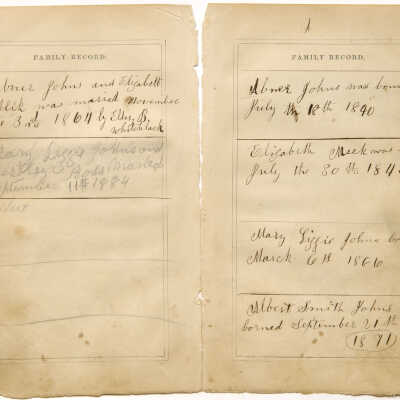 FAMILY RECORD.
Abner Johns and Elizabeth
Meek was maried November
3rd 1864 by Elder B.
Whitlack
Mary Liggie Johns and
Ross maried
September 11th 1884
FAMILY RECORD.
Abner Johns was born
July the 18th 1840
Elizabeth Meek was
July the 30th 184
Mary Liggie Johns bo
March 6th 1866
Albert Smith Johns
borned September 21th
1871